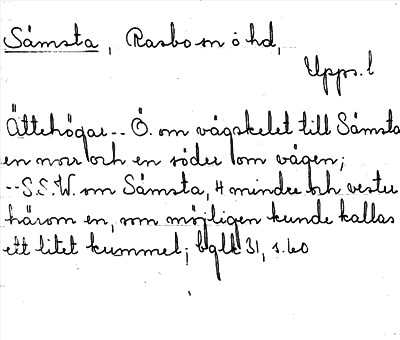 Såmsta, Rasbo sn o hd,
Upps. l
Ättehögar -- Ö. om vägskelet till Såmsta
en norr och en söder om vägen;
-- S.S.W. om Såmsta, 4 mindre och vester
härom en, som möjligen kunde kallas
ett litet kummel; bglk 31, s. 60